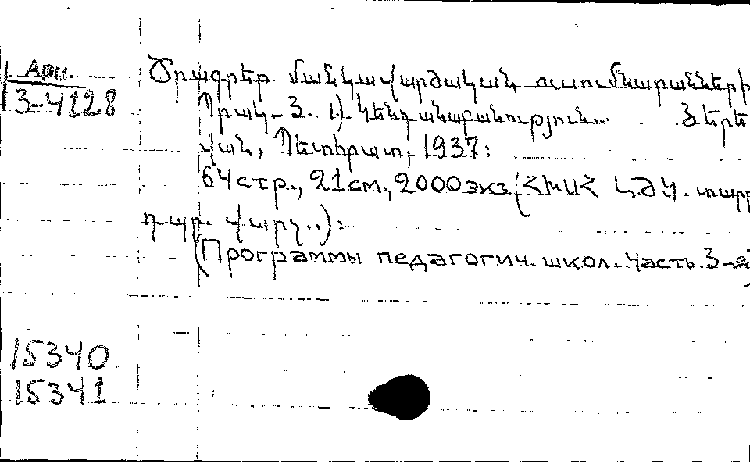 Арм.
3-4128
Ծրագրեր մանկավարժական ուսումնարանների
Պրակ-3. 1) Կենդանաբանություն... Երե
վան, Պետհրատ, 1937:
64 стр., 21 см., 2000 экз. (ՀԽՍՀ Լ.Ժ.Կ.
դպր. վարչ..):
(Программы педагогич. школ. Часть 3-я)
15340
15341